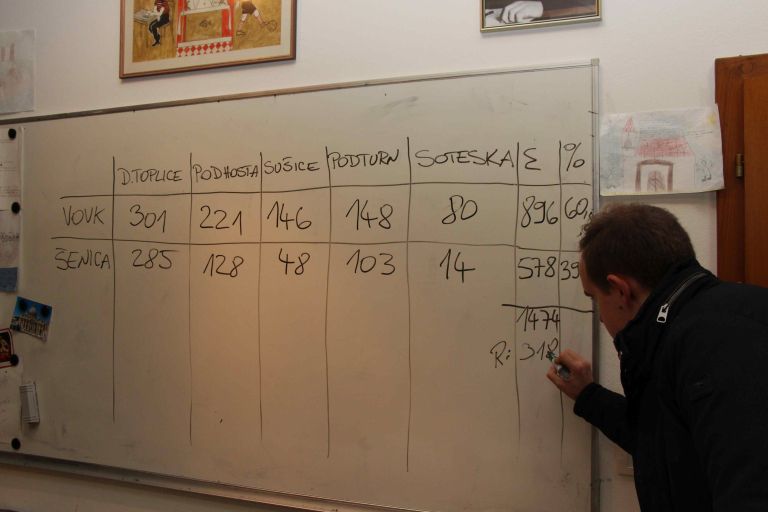 D.TOPLICE PODHOSTA SUŠICE PODTURN SOTESKA Σ %
VOVK 301 221 146 148 80 896 60,
ŠENICA 285 128 48 103 14 578 39
1474
R: 318